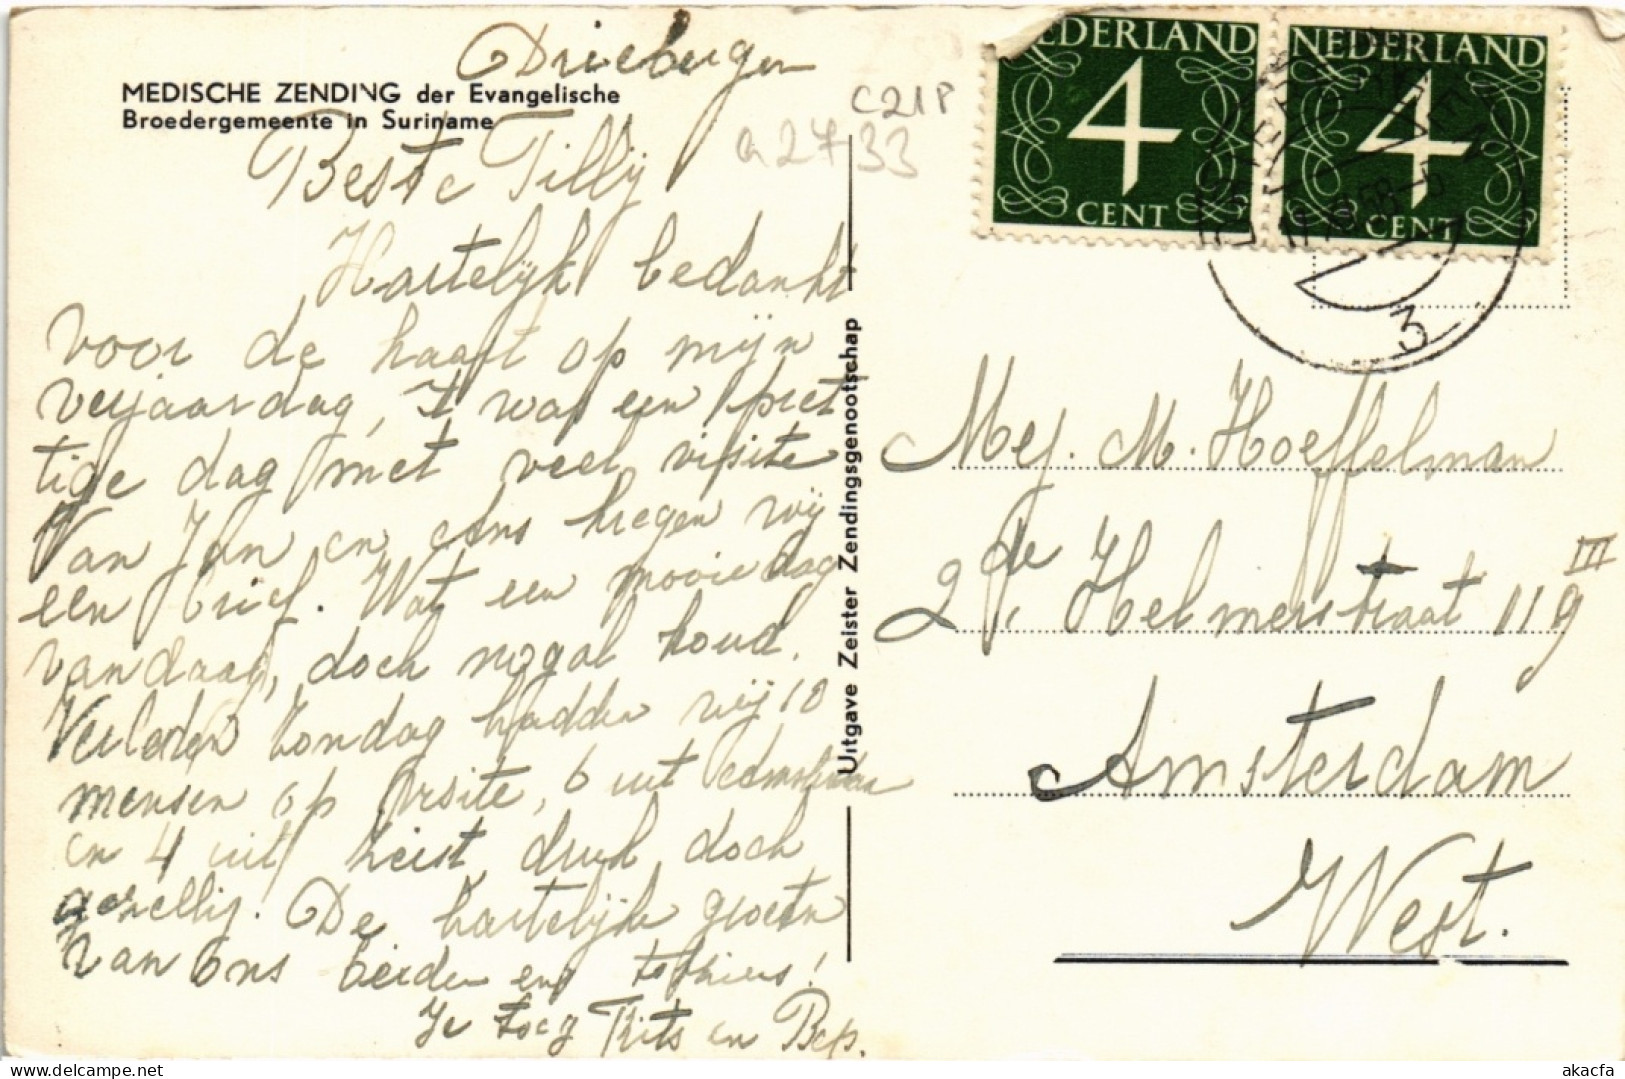 Driebergen
MEDISCHE ZENDING der Evangelische
Broedergemeente in Suriname
C21P
a2733
Beste Tilly
Hartelijk bedankt
voor de kaart op mijn
verjaardag, 't was een pret
tige dag met veel visite
Van Jan en Ans kregen wij
een brief. Wat een mooie dag
vandaag, doch nogal koud.
Verleden Zondag hadden wij 10
mensen op visite, 6 uit
en 4 uit Zeist, druk doch
gezellig. De hartelijke groeten
van ons beiden en
Je Frits en Bep.
Uitgave Zeister Zendingsgenootschap
NEDERLAND
4
CENT
NEDERLAND
4
CENT
3
Mej. M. Hoeffelman
2de Helmersstraat 119 III
Amsterdam
West.
akacfa